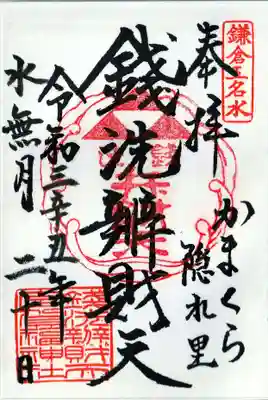 鎌倉五名水
奉拝
かまくら
隠れ里
錢洗辨財天
令和三辛丑年
水無月 二十日